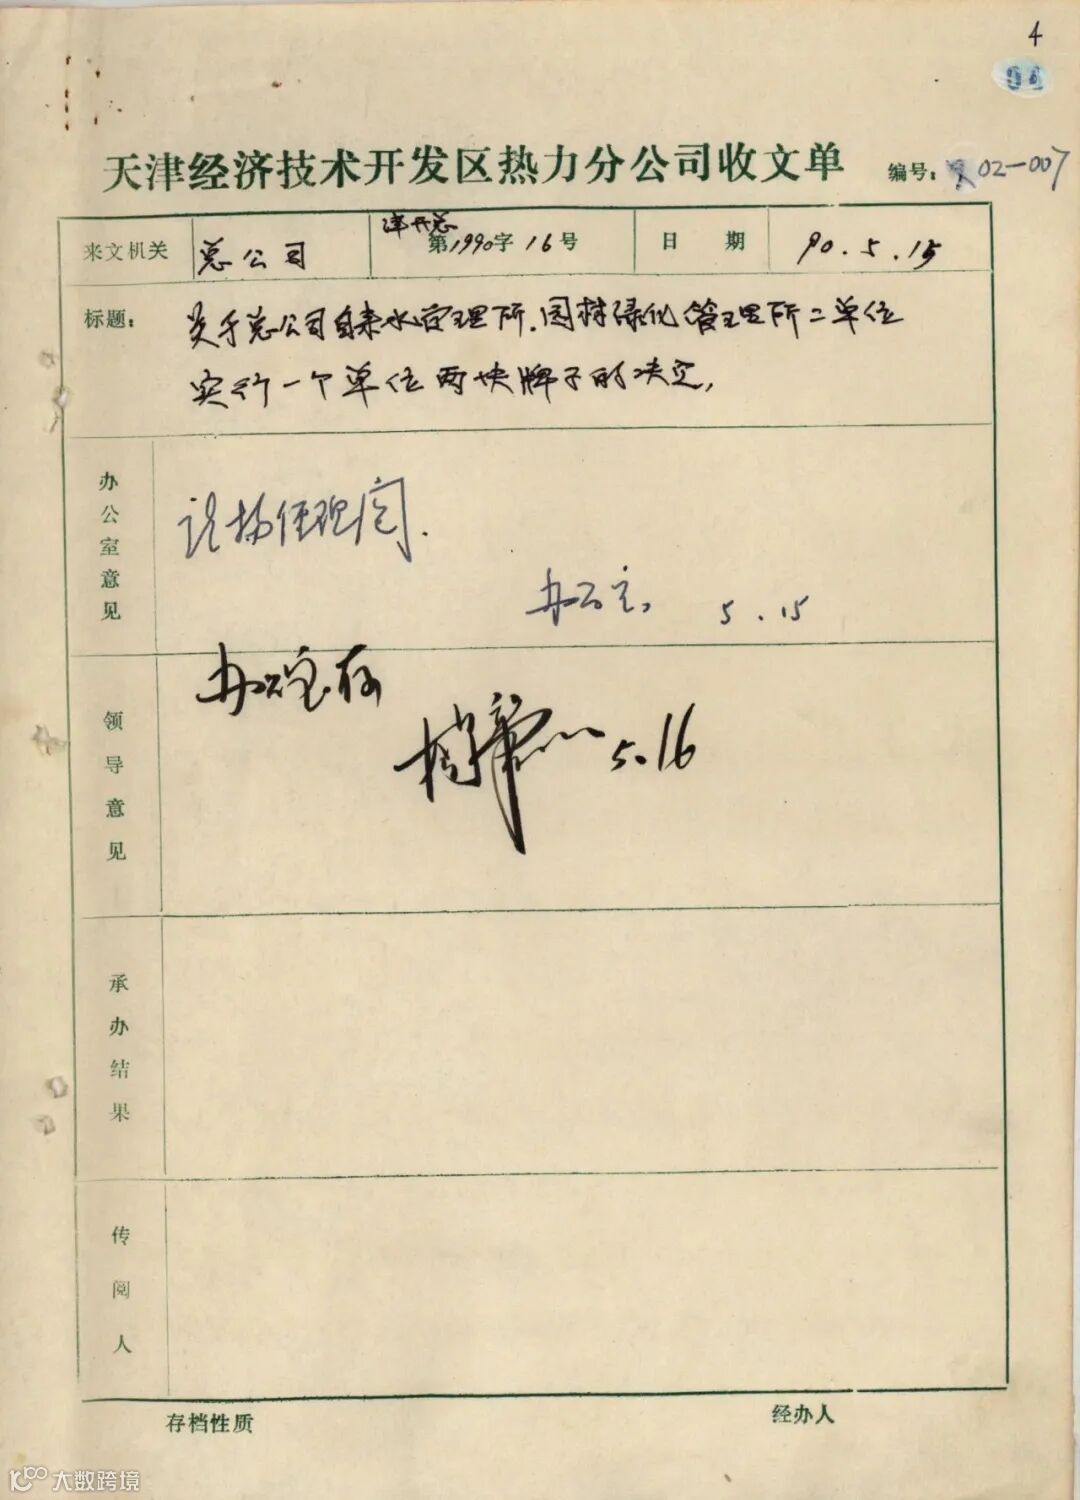 4
天津经济技术开发区热力分公司收文单 编号:02-007
来文机关 总公司 津开总 第1990字16号 日期 90.5.15
标题: 关于总公司自来水管理所.园林绿化管理所二单位
实行一个单位两块牌子的决定,
办公室意见
请杨经理阅.
办公室, 5.15
领导意见
办公室存
5.16
承办结果
传阅人
存档性质 经办人
大数跨境